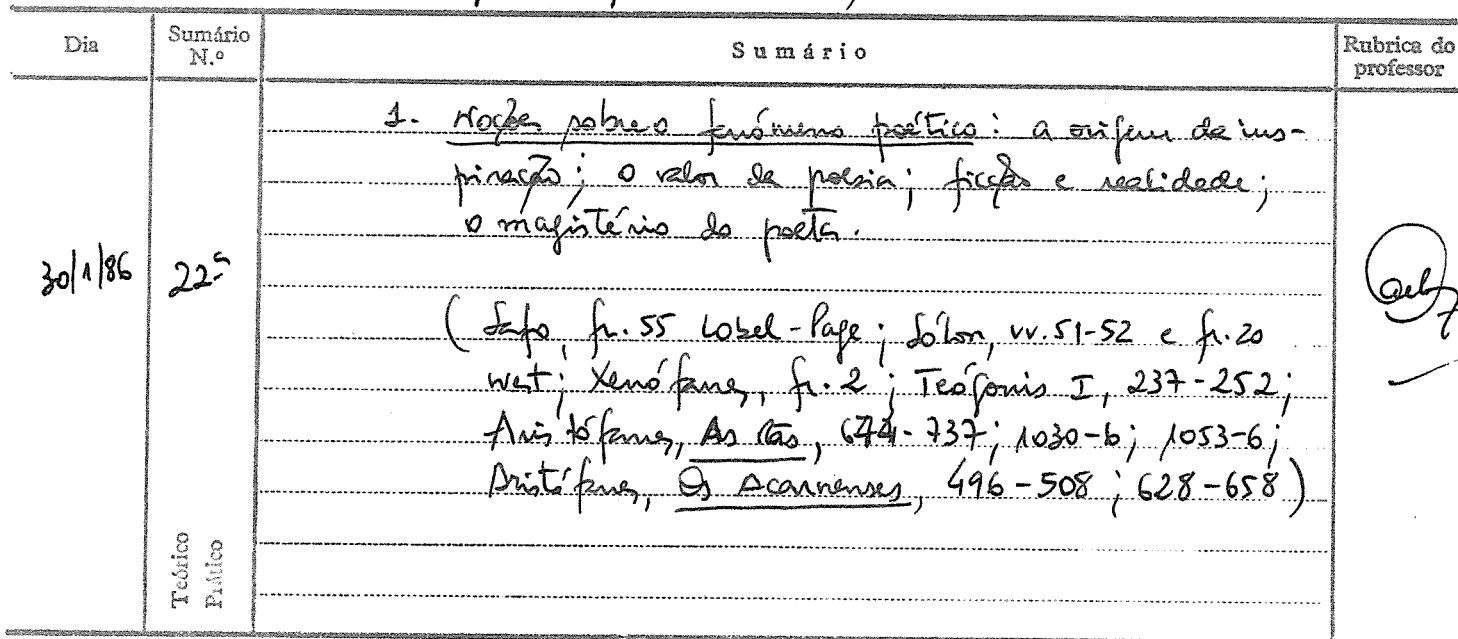 Dia
Sumário N.º
Sumário
Rubrica do professor
1. Noções sobre o fenómeno poético: a origem da ins-
piração; o valor da poesia; ficção e realidade;
o magistério do poeta.
30/1/86
22ª
(Safo, fr. 55 Lobel-Page; Sólon, vv. 51-52 e fr. 20
West; Xenófanes, fr. 2; Teógonis I, 237-252;
Aristófanes, As Rãs, 674-737; 1030-6; 1053-6;
Aristófanes, Os Acarnenses, 496-508; 628-658)
Teórico
Prático